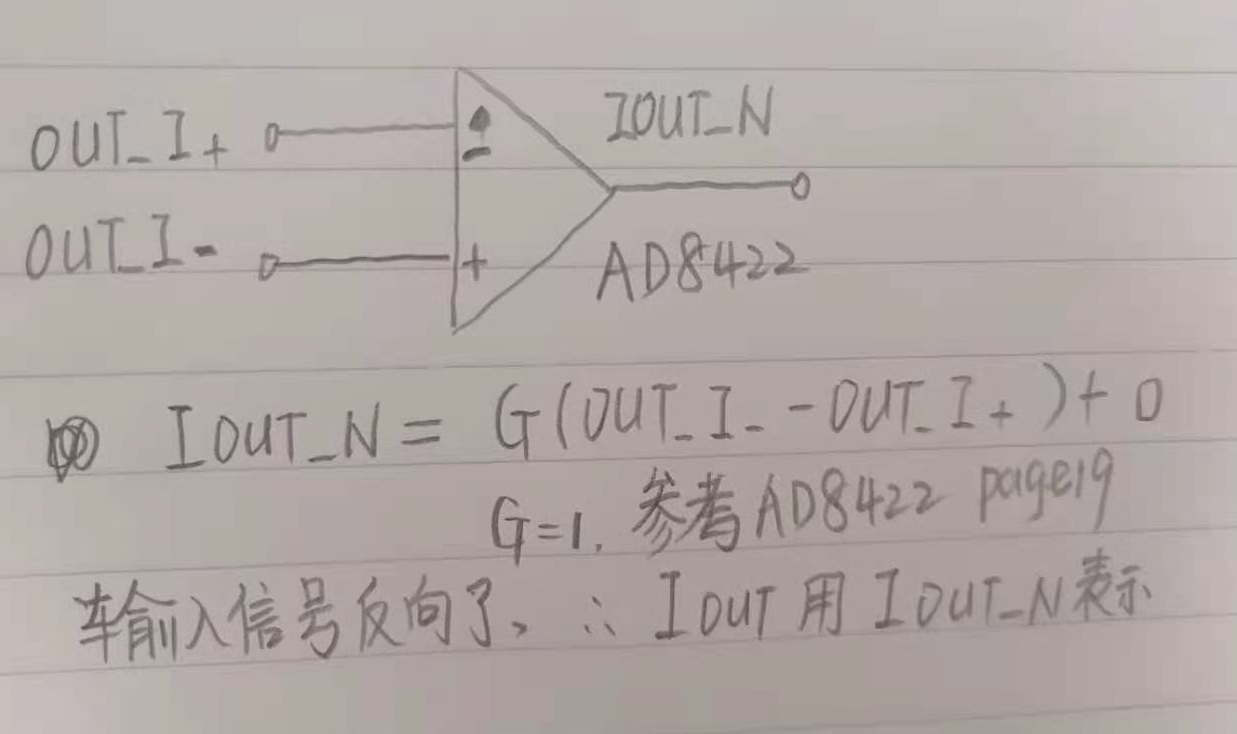 OUT_I+
-
IOUT_N
OUT_I-
+
AD8422
IOUT_N = G(OUT_I- - OUT_I+) + 0
G=1. 参考AD8422 page19
输入信号反向了, ∴ IOUT 用 IOUT_N表示